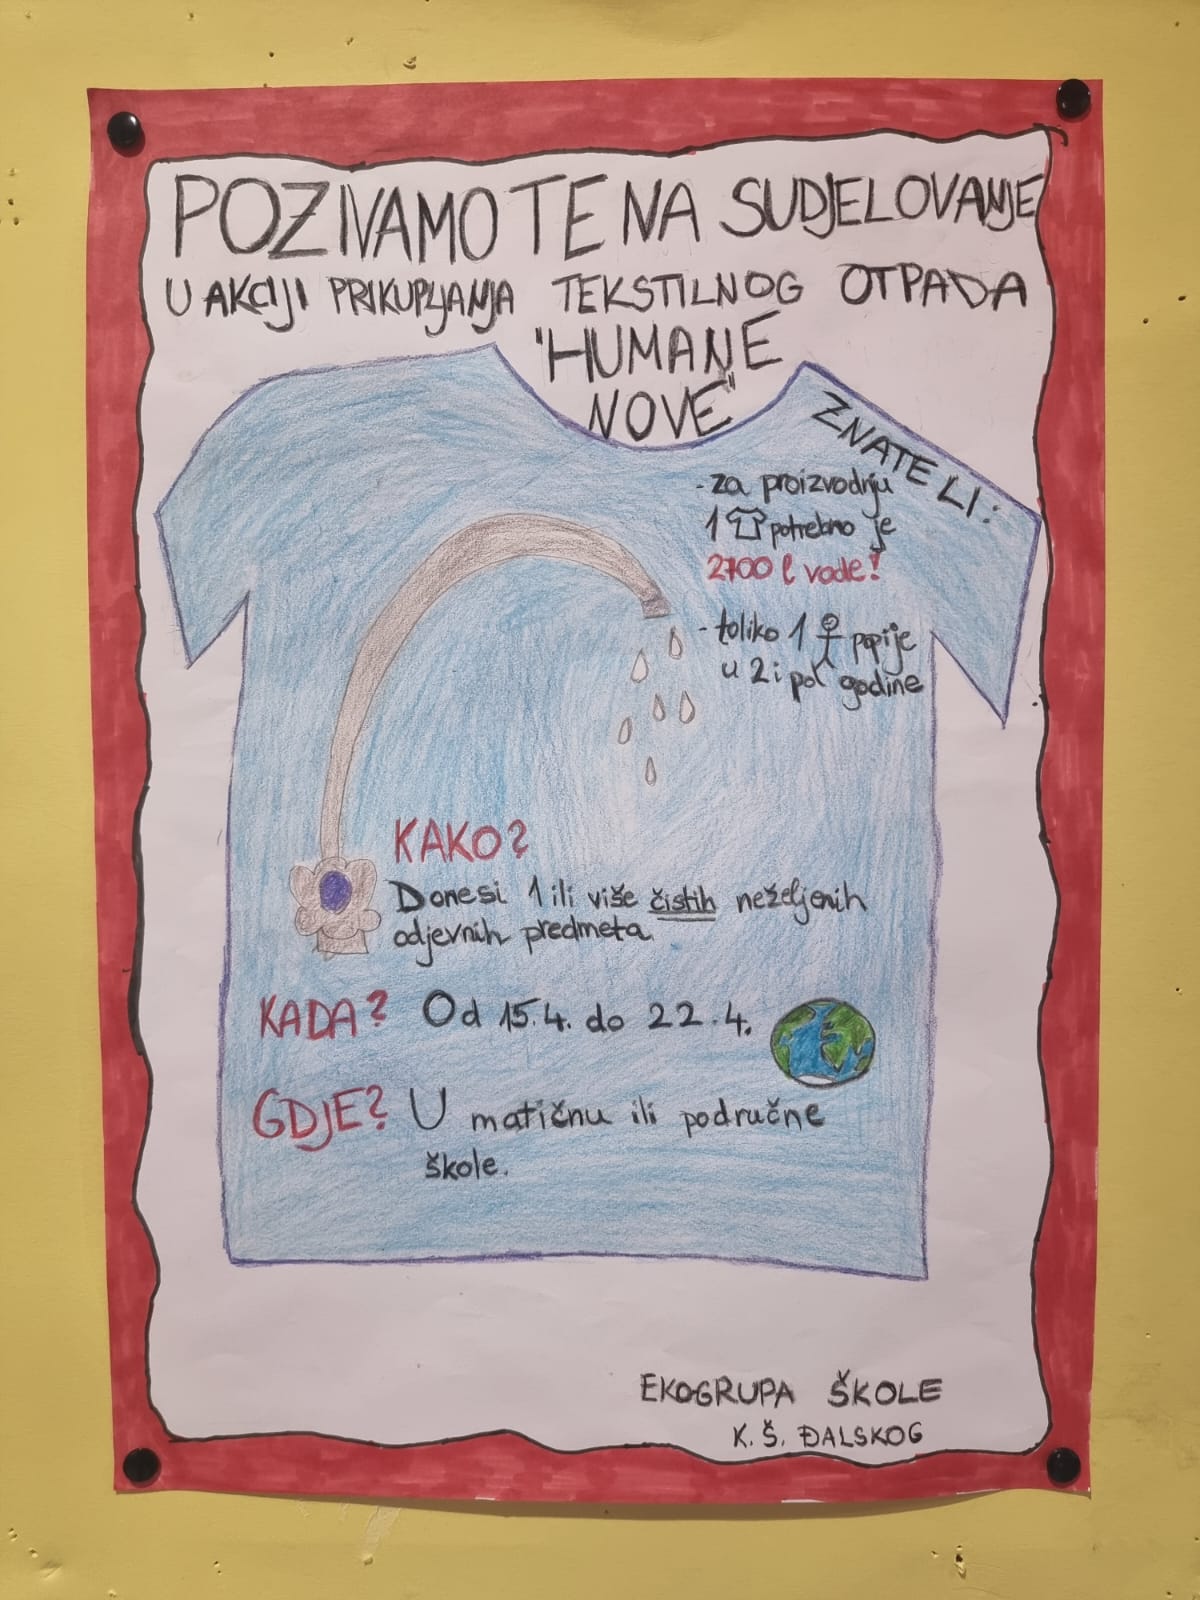 POZIVAMO TE NA SUDJELOVANJE
U AKCIJI PRIKUPLJANJA TEKSTILNOG OTPADA
"HUMANE
NOVE"
ZNATE LI:
- za proizvodnju
1 potrebno je
2700 l vode!
- toliko 1 popije
u 2 i pol godine
KAKO?
Donesi 1 ili više čistih neželjenih
odjevnih predmeta.
KADA? Od 15.4. do 22.4.
GDJE? U matičnu ili područne
škole.
EKOGRUPA ŠKOLE
K. Š. ĐALSKOG